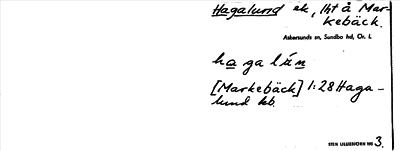 Hagalund ek, lht å Mar-
kebäck.
Askersunds sn, Sundbo hd, Ör. l.
ha ga lún
[Markebäck] 1:28 Haga-
lund kb.
STEN LILLIEHÖÖK 195 3.